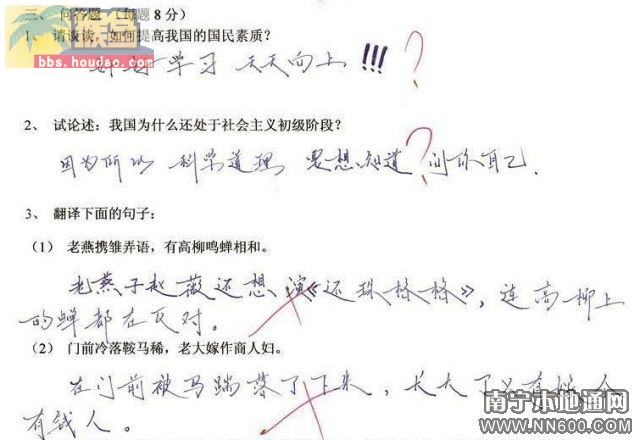 三、 问答题 (每题 8 分)
猴岛
bbs.houdao.com
1、 请谈谈，如何提高我国的国民素质？
好好学习 天天向上 !!! ?
2、 试论述：我国为什么还处于社会主义初级阶段？
因为所以 科学道理 要想知道 问你自己. ?
3、 翻译下面的句子：
（1） 老燕携雏弄语，有高柳鸣蝉相和。
老燕子赵薇还想演《还珠格格》，连高柳上
的蝉都在反对。
（2） 门前冷落鞍马稀，老大嫁作商人妇。
在门前被马踹落了下来，长大了又有嫁个
有钱人。
南宁本地通网
WWW.NN600.COM